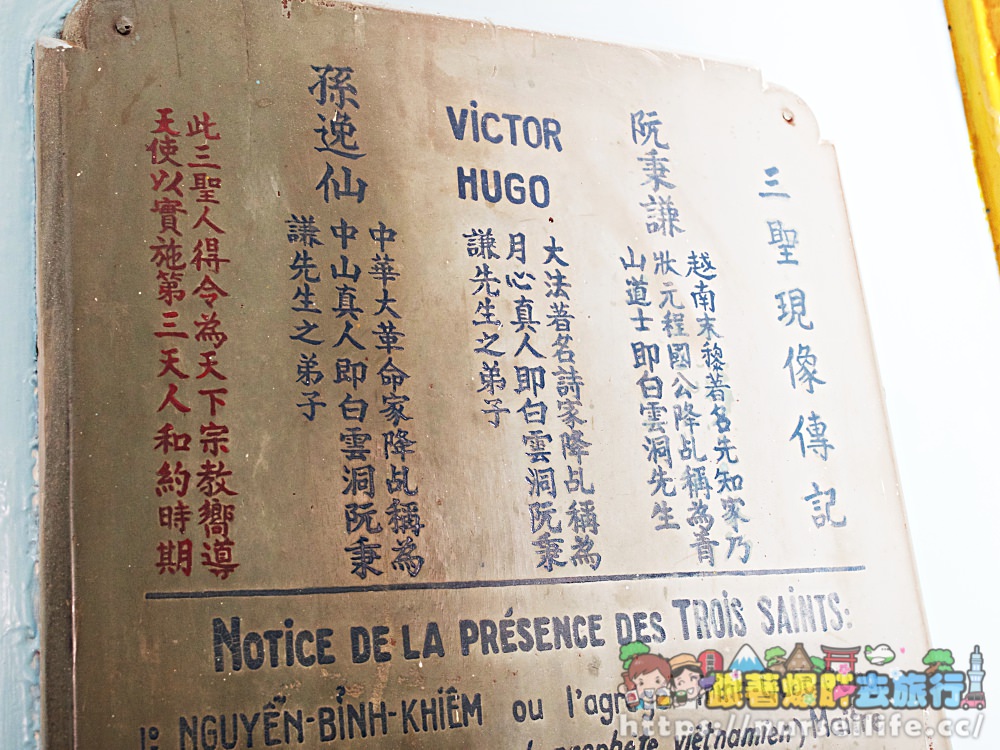 三聖現像傳記
阮秉謙
越南末黎著名先知家乃
狀元程國公降乩稱為青
山道士即白雲洞先生
VICTOR
HUGO
大法著名詩家降乩稱為
月心真人即白雲洞阮秉
謙先生之弟子
孫逸仙
中華大革命家降乩稱為
中山真人即白雲洞阮秉
謙先生之弟子
此三聖人得令為天下宗教嚮導
天使以實施第三天人和約時期
NOTICE DE LA PRÉSENCE DES TROIS SAINTS:
1: NGUYỄN-BỈNH-KHIÊM ou l'agrég
prophete vietnamien) Maître
跟著爆肝去旅行
https://nurseilife.cc/